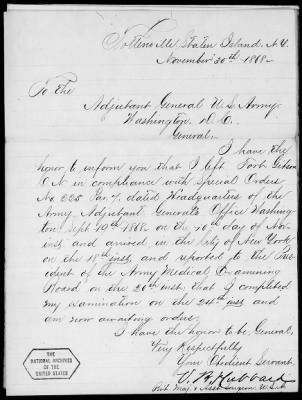 Tottenville Staten Island, N.Y.
November 30th 1868-
To the
Adjutant General U.S. Army.
Washington. D.C.
General.
I have the
honor to inform you that I left Fort Gibson
C.N. in compliance with Special Orders
No 225 Par. 7. dated Headquarters of the
Army Adjutant General's Office Washing-
ton Sept 19th 1868. on the 10th day of Nov.
inst and arrived in the City of New York
on the 18th inst, and reported to the Pres-
ident of the Army Medical Examining
Board on the 20th inst, that I completed
my examination on the 24th inst and
am now awaiting orders.
I have the honor to be, General,
Very Respectfully
Your Obedient Servant.
V. B. Hubbard
Bvt. Maj. & Asst. Surgeon U.S.A.
THE
NATIONAL ARCHIVES
OF THE
UNITED STATES